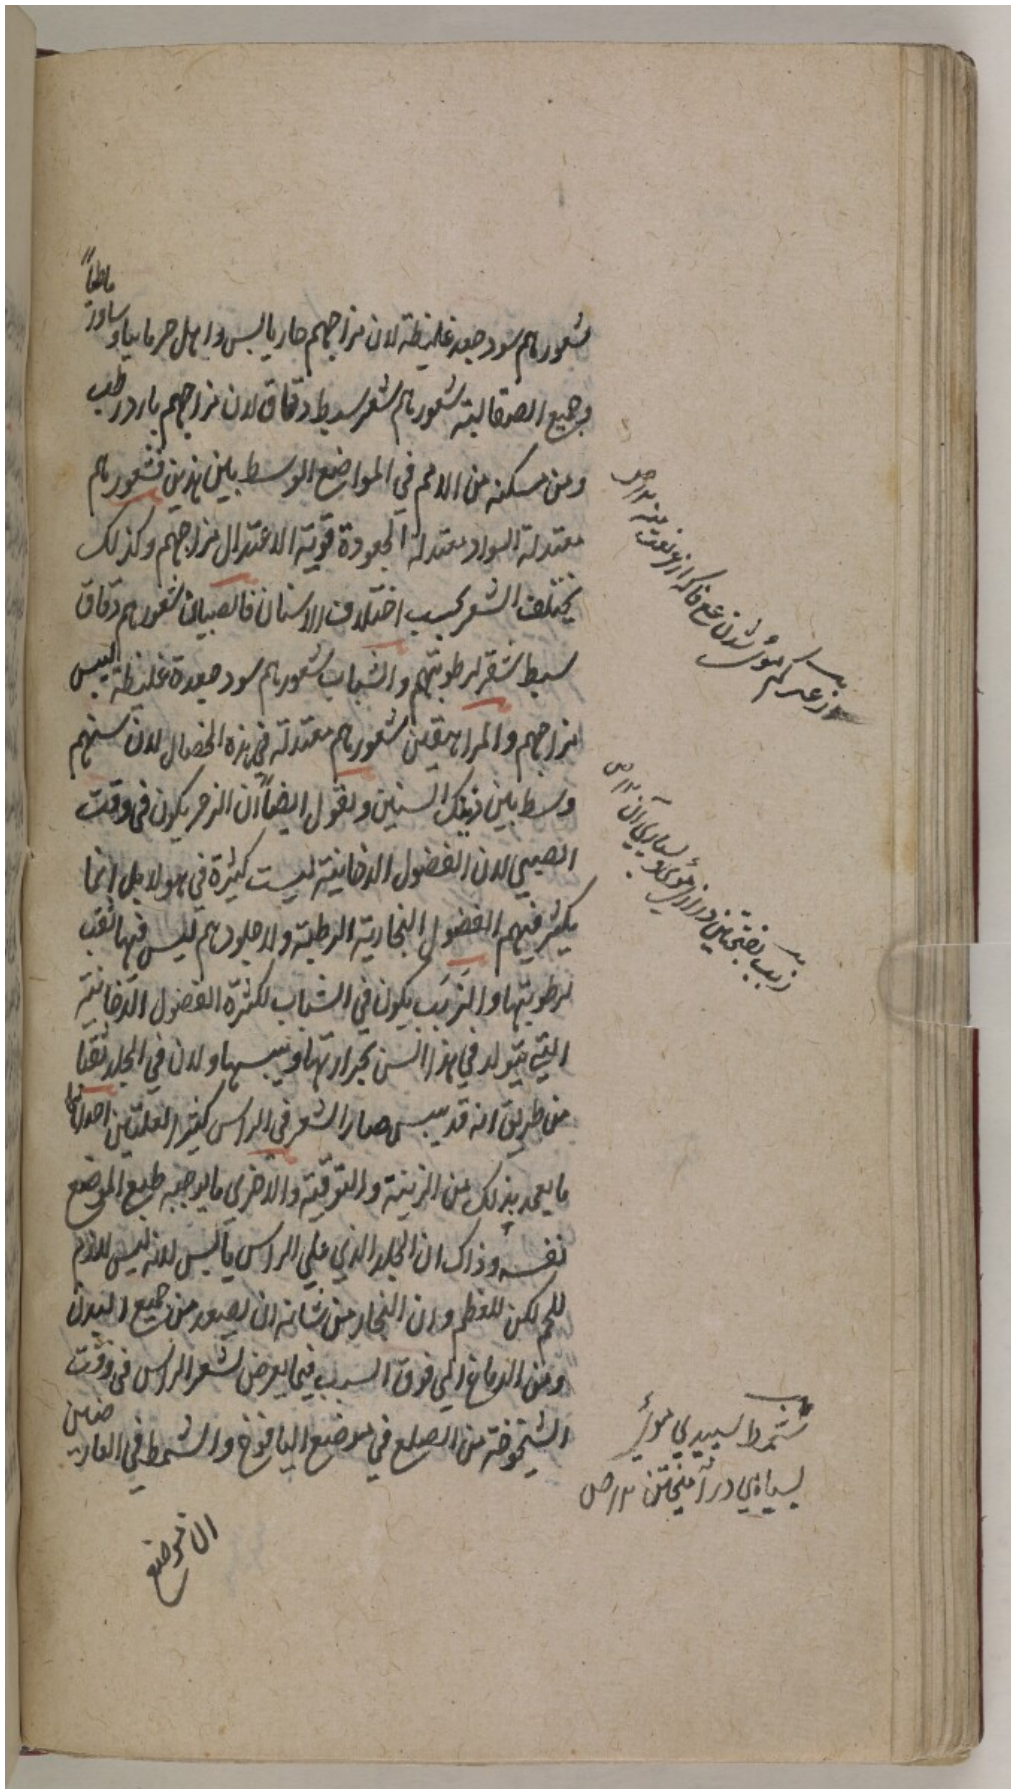 شعورهم سود جعد غليظة لان مزاجهم حار يابس واهل جرمانيا و ساورة
ماطفا
وجميع الصقالبة شعورهم شقر سبط دقاق لان مزاجهم بارد رطب
ومن مسكنه من الامم في المواضع الوسط بين هذين فشعورهم
معتدلة السواد معتدلة الجعودة قوية لاعتدال مزاجهم وكذلك
يختلف الشعر بحسب اختلاف الاسنان فالصبيان شعورهم دقاق
سبط شقر لرطوبتهم والشباب شعورهم سود جعدة غليظة ليبس
مزاجهم والمراهقين شعورهم معتدلة في هذه الخصال لان سنهم
وسط بين ذينك السنين ونقول ايضاً ان الزعر يكون في وقت
الصبي لان الفضول الدخانية ليست كثيرة في هولا بل انما
يكثر فيهم الفضول البخارية الرطبة ولا جلودهم ليس فيها ثقب
لرطوبتها والزبب يكون في الشباب لكثرة الفضول الدخانية
التي يتولد في هذا السن بحرارتها ويبسها ولان في الجلد ثقبا
من طريق انه قد يبس صار الشعر في الراس كثير لعلتين احدا
ما يعمد بذلك من الزينة والتوقية والاخرى ما يوجبه طبع الموضع
نفسه وذاك ان الجلد الذي علي الراس يابس لانه ليس ملازم
للحم لكن للعظم وان البخار من شانه ان يصعد من جميع البدن
ومن الدماغ الي فوق السبب فيما يعرض لشعر الراس في وقت
الشيخوخة من الصلع في موضع اليافوخ والشمط في العارضين
ان موضع
زعر كم موي شدن
زبب بفتحتين درازي موي و بسياري آن
شمط سپيدي موي
بسياهي در آميختن